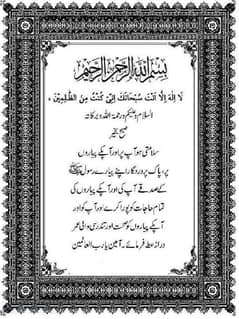 بسم اللہ الرحمن الرحیم
لَا إِلٰهَ إِلَّا أَنْتَ سُبْحَانَكَ إِنِّي كُنْتُ مِنَ الظَّلِمِينَ ۰
السلام وعلیکم ورحمۃ اللہ وبرکاتہ
صبح بخیر
سلامتی ہو آپ پر اور آپکے پیاروں
پر، پاک پروردگار اپنے پیارے رسول ﷺ
کے صدقے آپ کی اور آپکے پیاروں کی
تمام حاجات کو پورا کرے اور آپ کو اور
آپکے پیاروں کو صحت اور تندرستی والی عمر
دراز عطا فرمائے۔ آمین یا رب العالمین